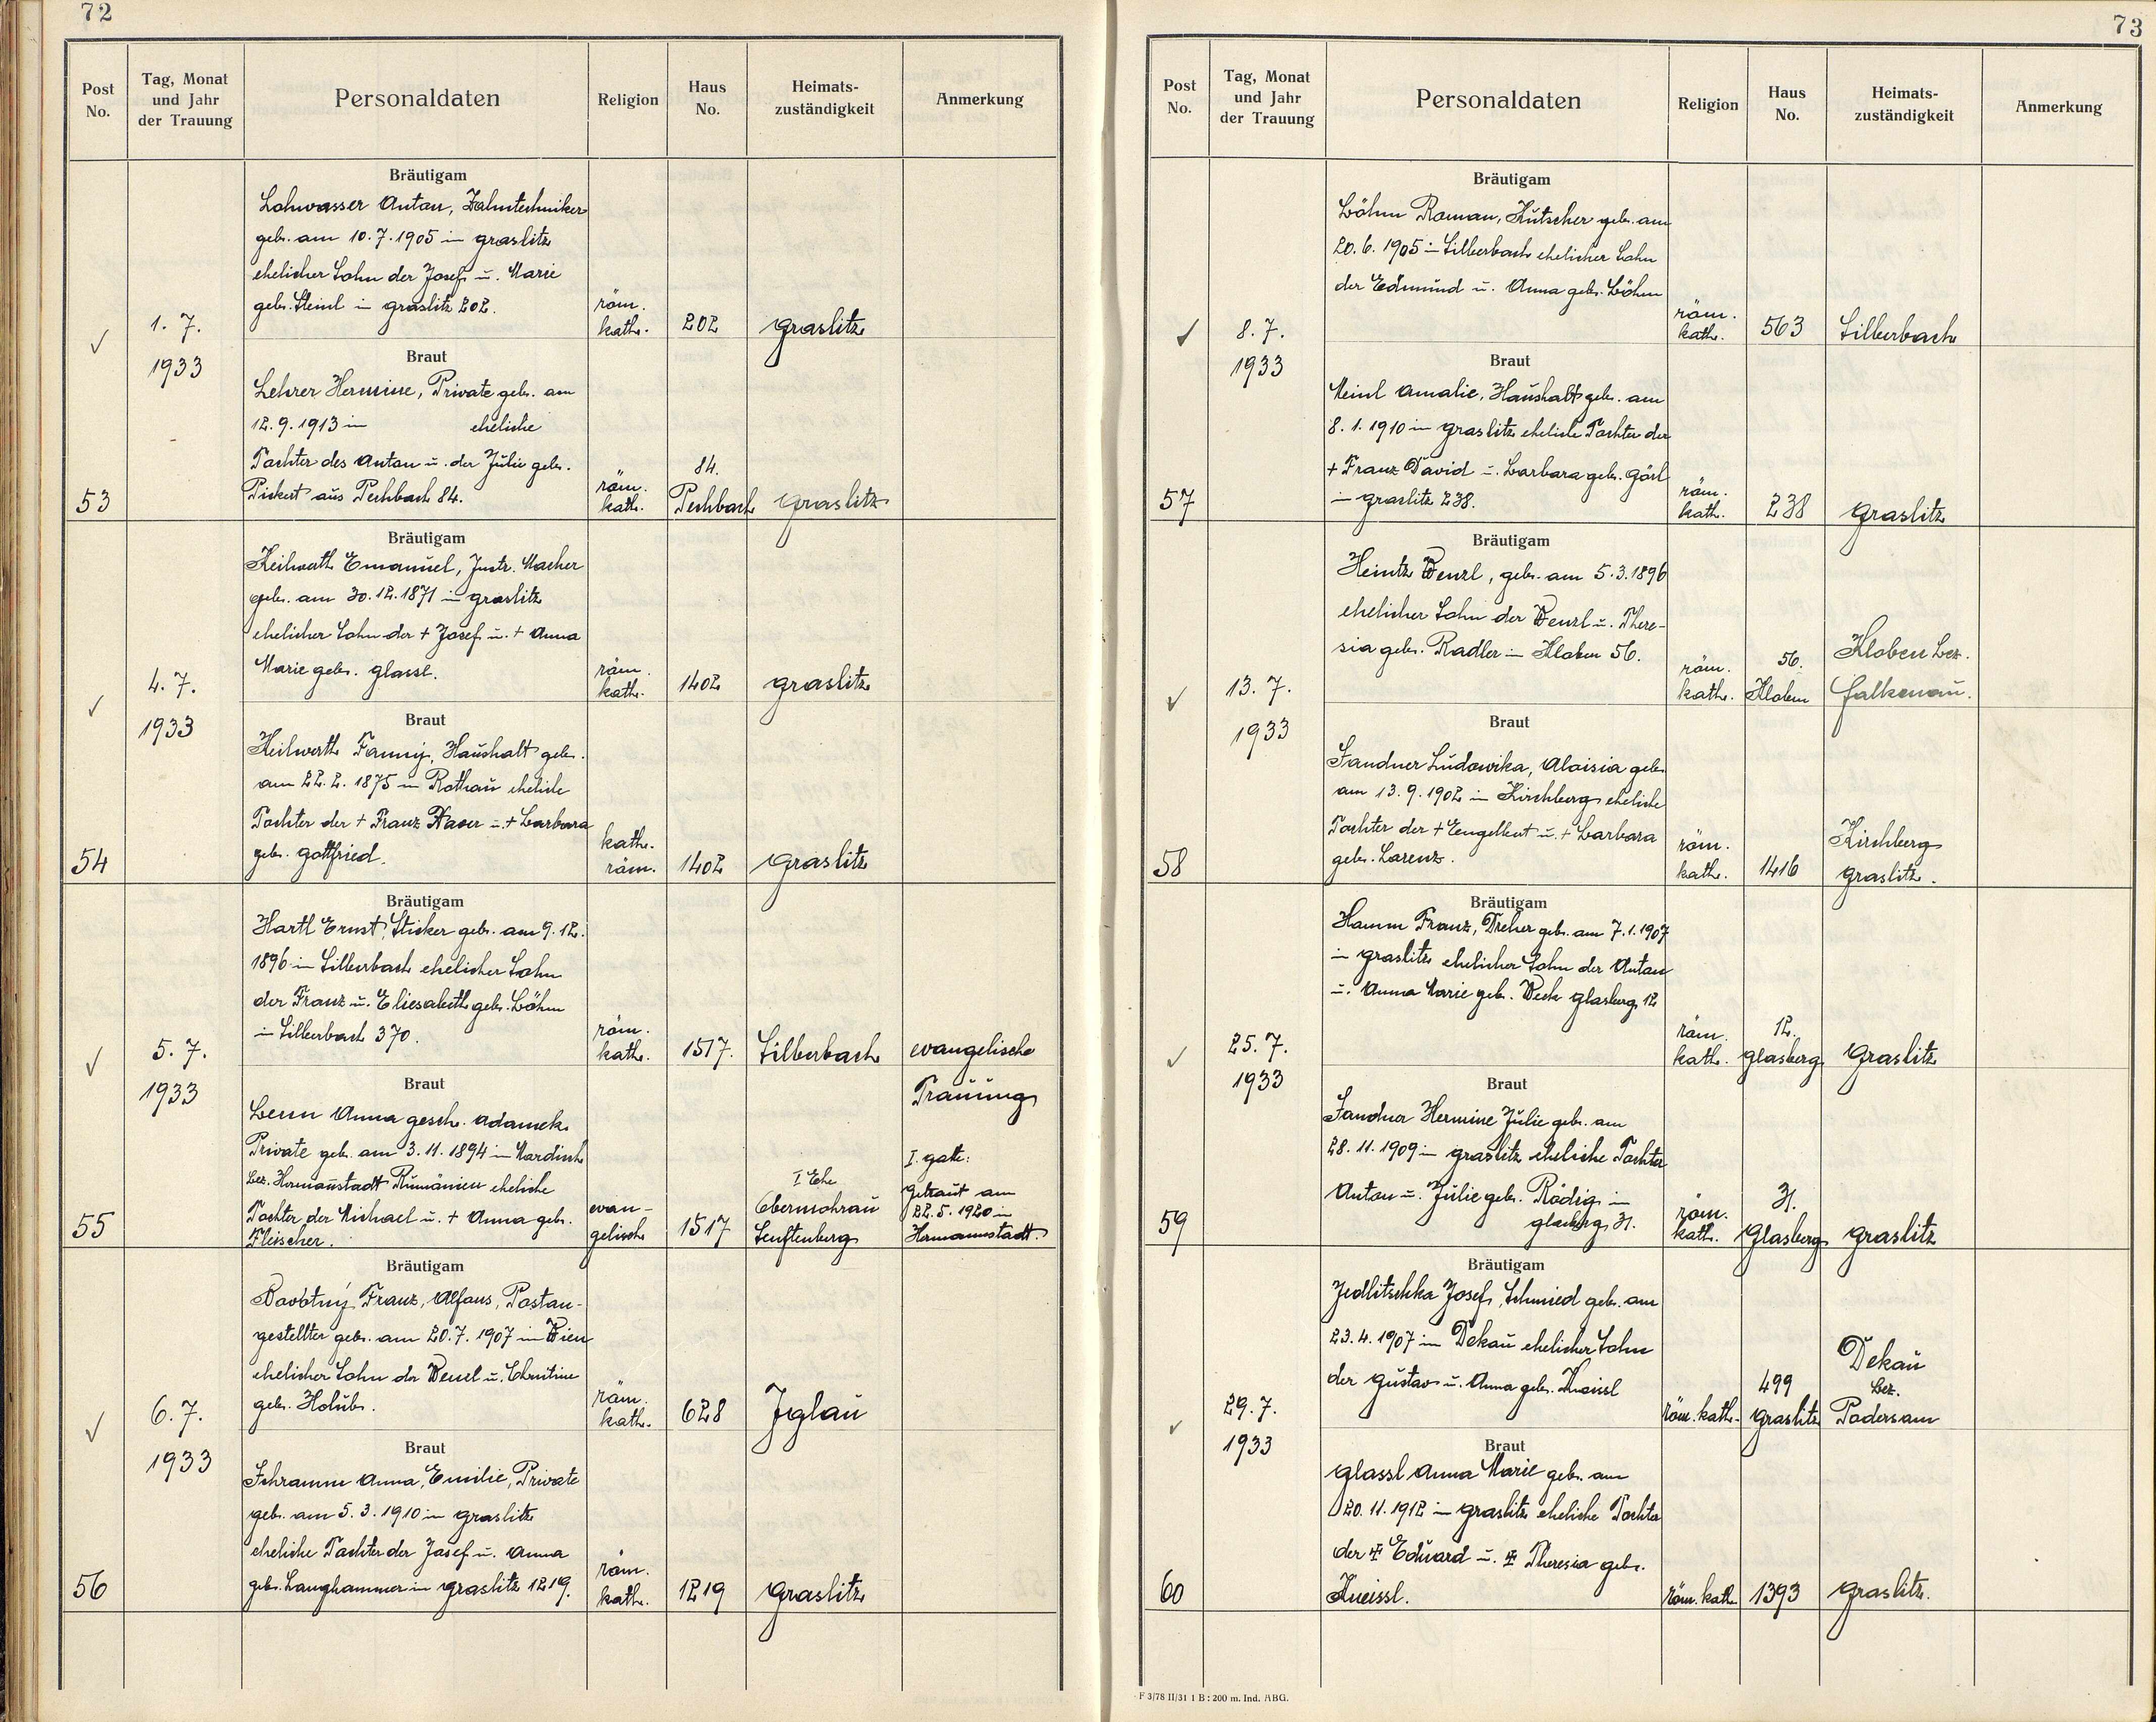 72
Post No.
Tag, Monat und Jahr der Trauung
Personaldaten
Religion
Haus No.
Heimats-zuständigkeit
Anmerkung
Bräutigam
Lohwasser Anton, Zahntechniker
geb. am 10.7.1905 in Graslitz
ehelicher Sohn der Josef u. Marie
geb. Steinl in Graslitz 202.
röm.
kath.
202
Graslitz
1. 7.
1933
Braut
Lehrer Hermine, Private geb. am
12.9.1913 in eheliche
Tochter des Anton u. der Julie geb.
Pickert aus Pechbach 84.
röm.
kath.
84.
Pechbach
Graslitz
53
Bräutigam
Keilwerth Emanuel, Instr. Macher
geb. am 30.12.1871 in Graslitz
ehelicher Sohn der + Josef u. + Anna
Marie geb. Glassl.
röm.
kath.
1402
Graslitz
4. 7.
1933
Braut
Keilwerth Fanny, Haushalt geb.
am 22.2.1875 in Rothau eheliche
Tochter der + Franz Xaver u. + Barbara
geb. Gottfried.
kath.
röm.
1402
Graslitz
54
Bräutigam
Hartl Ernst, Sticker geb. am 9.12.
1896 in Silberbach ehelicher Sohn
der Franz u. Eliesabeth geb. Böhm
in Silberbach 370.
röm.
kath.
1517.
Silberbach
evangelische
Trauung
5. 7.
1933
Braut
Benn Anna gesch. Adamek
Private geb. am 3.11.1894 in Mardisch
Bez. Hermannstadt Rumänien eheliche
Tochter der Michael u. + Anna geb.
Fleischer.
evan-
gelisch
1517
I Ehe
Obermohrau
Senftenberg
I. Gatte:
Getraut am
22.5.1920 in
Hermannstadt.
55
Bräutigam
Franz, Alfons, Postan-
gestellter geb. am 20.7.1907 in Wien
ehelicher Sohn der Wenzl u. Christine
geb. Holub.
röm.
kath.
628
Iglau
6. 7.
1933
Braut
Schramm Anna, Emilie, Private
geb. am 5.3.1910 in Graslitz
eheliche Tochter der Josef u. Anna
geb. Langhammer in Graslitz 1219.
röm.
kath.
1219
Graslitz
56
73
Post No.
Tag, Monat und Jahr der Trauung
Personaldaten
Religion
Haus No.
Heimats-zuständigkeit
Anmerkung
Bräutigam
Böhm Roman, Kutscher geb. am
20.6.1905 in Silberbach ehelicher Sohn
der Edmund u. Anna geb. Böhm
röm.
kath.
563
Silberbach
8. 7.
1933
Braut
Meinl Amalie, Haushalt geb. am
8.1.1910 in Graslitz eheliche Tochter der
+ Franz David u. Barbara geb. Görl
in Graslitz 238.
röm.
kath.
238
Graslitz
57
Bräutigam
Heintz Wenzl, geb. am 5.3.1896
ehelicher Sohn der Wenzl u. There-
sia geb. Radler in Kloben 56.
röm.
kath.
56.
Kloben
Kloben Bez.
Falkenau.
13. 7.
1933
Braut
Sandner Ludowika, Aloisia geb.
am 13.9.1902 in Kirchberg eheliche
Tochter der + Engelbert u. + Barbara
geb. Lorenz.
röm.
kath.
1416
Kirchberg
Graslitz.
58
Bräutigam
Hamm Franz, Dreher geb. am 7.1.1907
in Graslitz ehelicher Sohn der Anton
u. Anna Marie geb. Weck Glasberg 12
röm.
kath.
12.
Glasberg
Graslitz
25. 7.
1933
Braut
Sandner Hermine Julie geb. am
28.11.1909 in Graslitz eheliche Tochter
Anton u. Julie geb. Rödig in
Glasberg 31.
röm.
kath.
31.
Glasberg
Graslitz
59
Bräutigam
Jedlitschka Josef, Schmied geb. am
23.4.1907 in Dekau ehelicher Sohn
der Gustav u. Anna geb.
röm. kath.
499
Graslitz
Dekau
Bez.
Podersam
29. 7.
1933
Braut
Glassl Anna Marie geb. am
20.11.1912 in Graslitz eheliche Tochter
der ‡ Eduard u. ‡ Theresia geb.
Kneissl.
röm. kath.
1393
Graslitz.
60
F 3/78 II/31 1 B : 200 m. Ind. ABG.